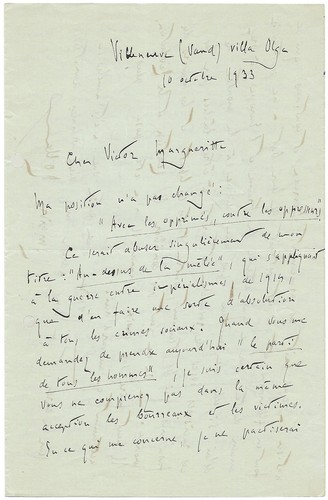 Villeneuve (Vaud) villa Olga
10 octobre 1933
Cher Victor Margueritte
Ma position n'a pas changé :
"Avec les opprimés, contre les oppresseurs"
Ce serait abuser singulièrement de mon
titre : "Au-dessus de la mêlée", qui s'appliquait
à la guerre entre impérialismes de 1914,
que d'en faire une sorte d'absolution
à tous les crimes sociaux. Quand vous me
demandez de prendre aujourd'hui "le parti
de tous les hommes", je suis certain que
vous ne comprenez pas dans la même
acception les bourreaux et les victimes.
En ce qui me concerne, je ne pactiserai